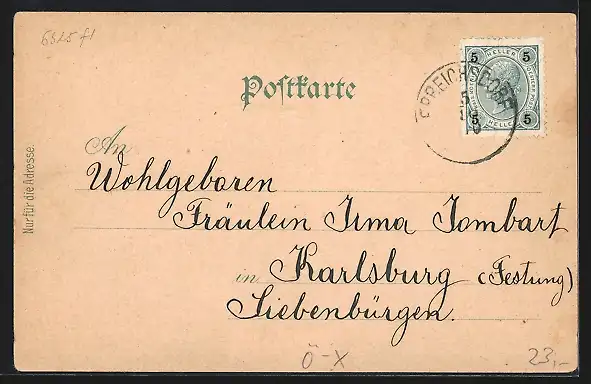 6325 f1
Postkarte
5 HELLER 5
5 HELLER 5
EBREICHSDORF
An
Wohlgeboren
Fräulein Irma Tombart
in Karlsburg (Festung)
Siebenbürgen.
Nur für die Adresse.
Ö-X
23,-